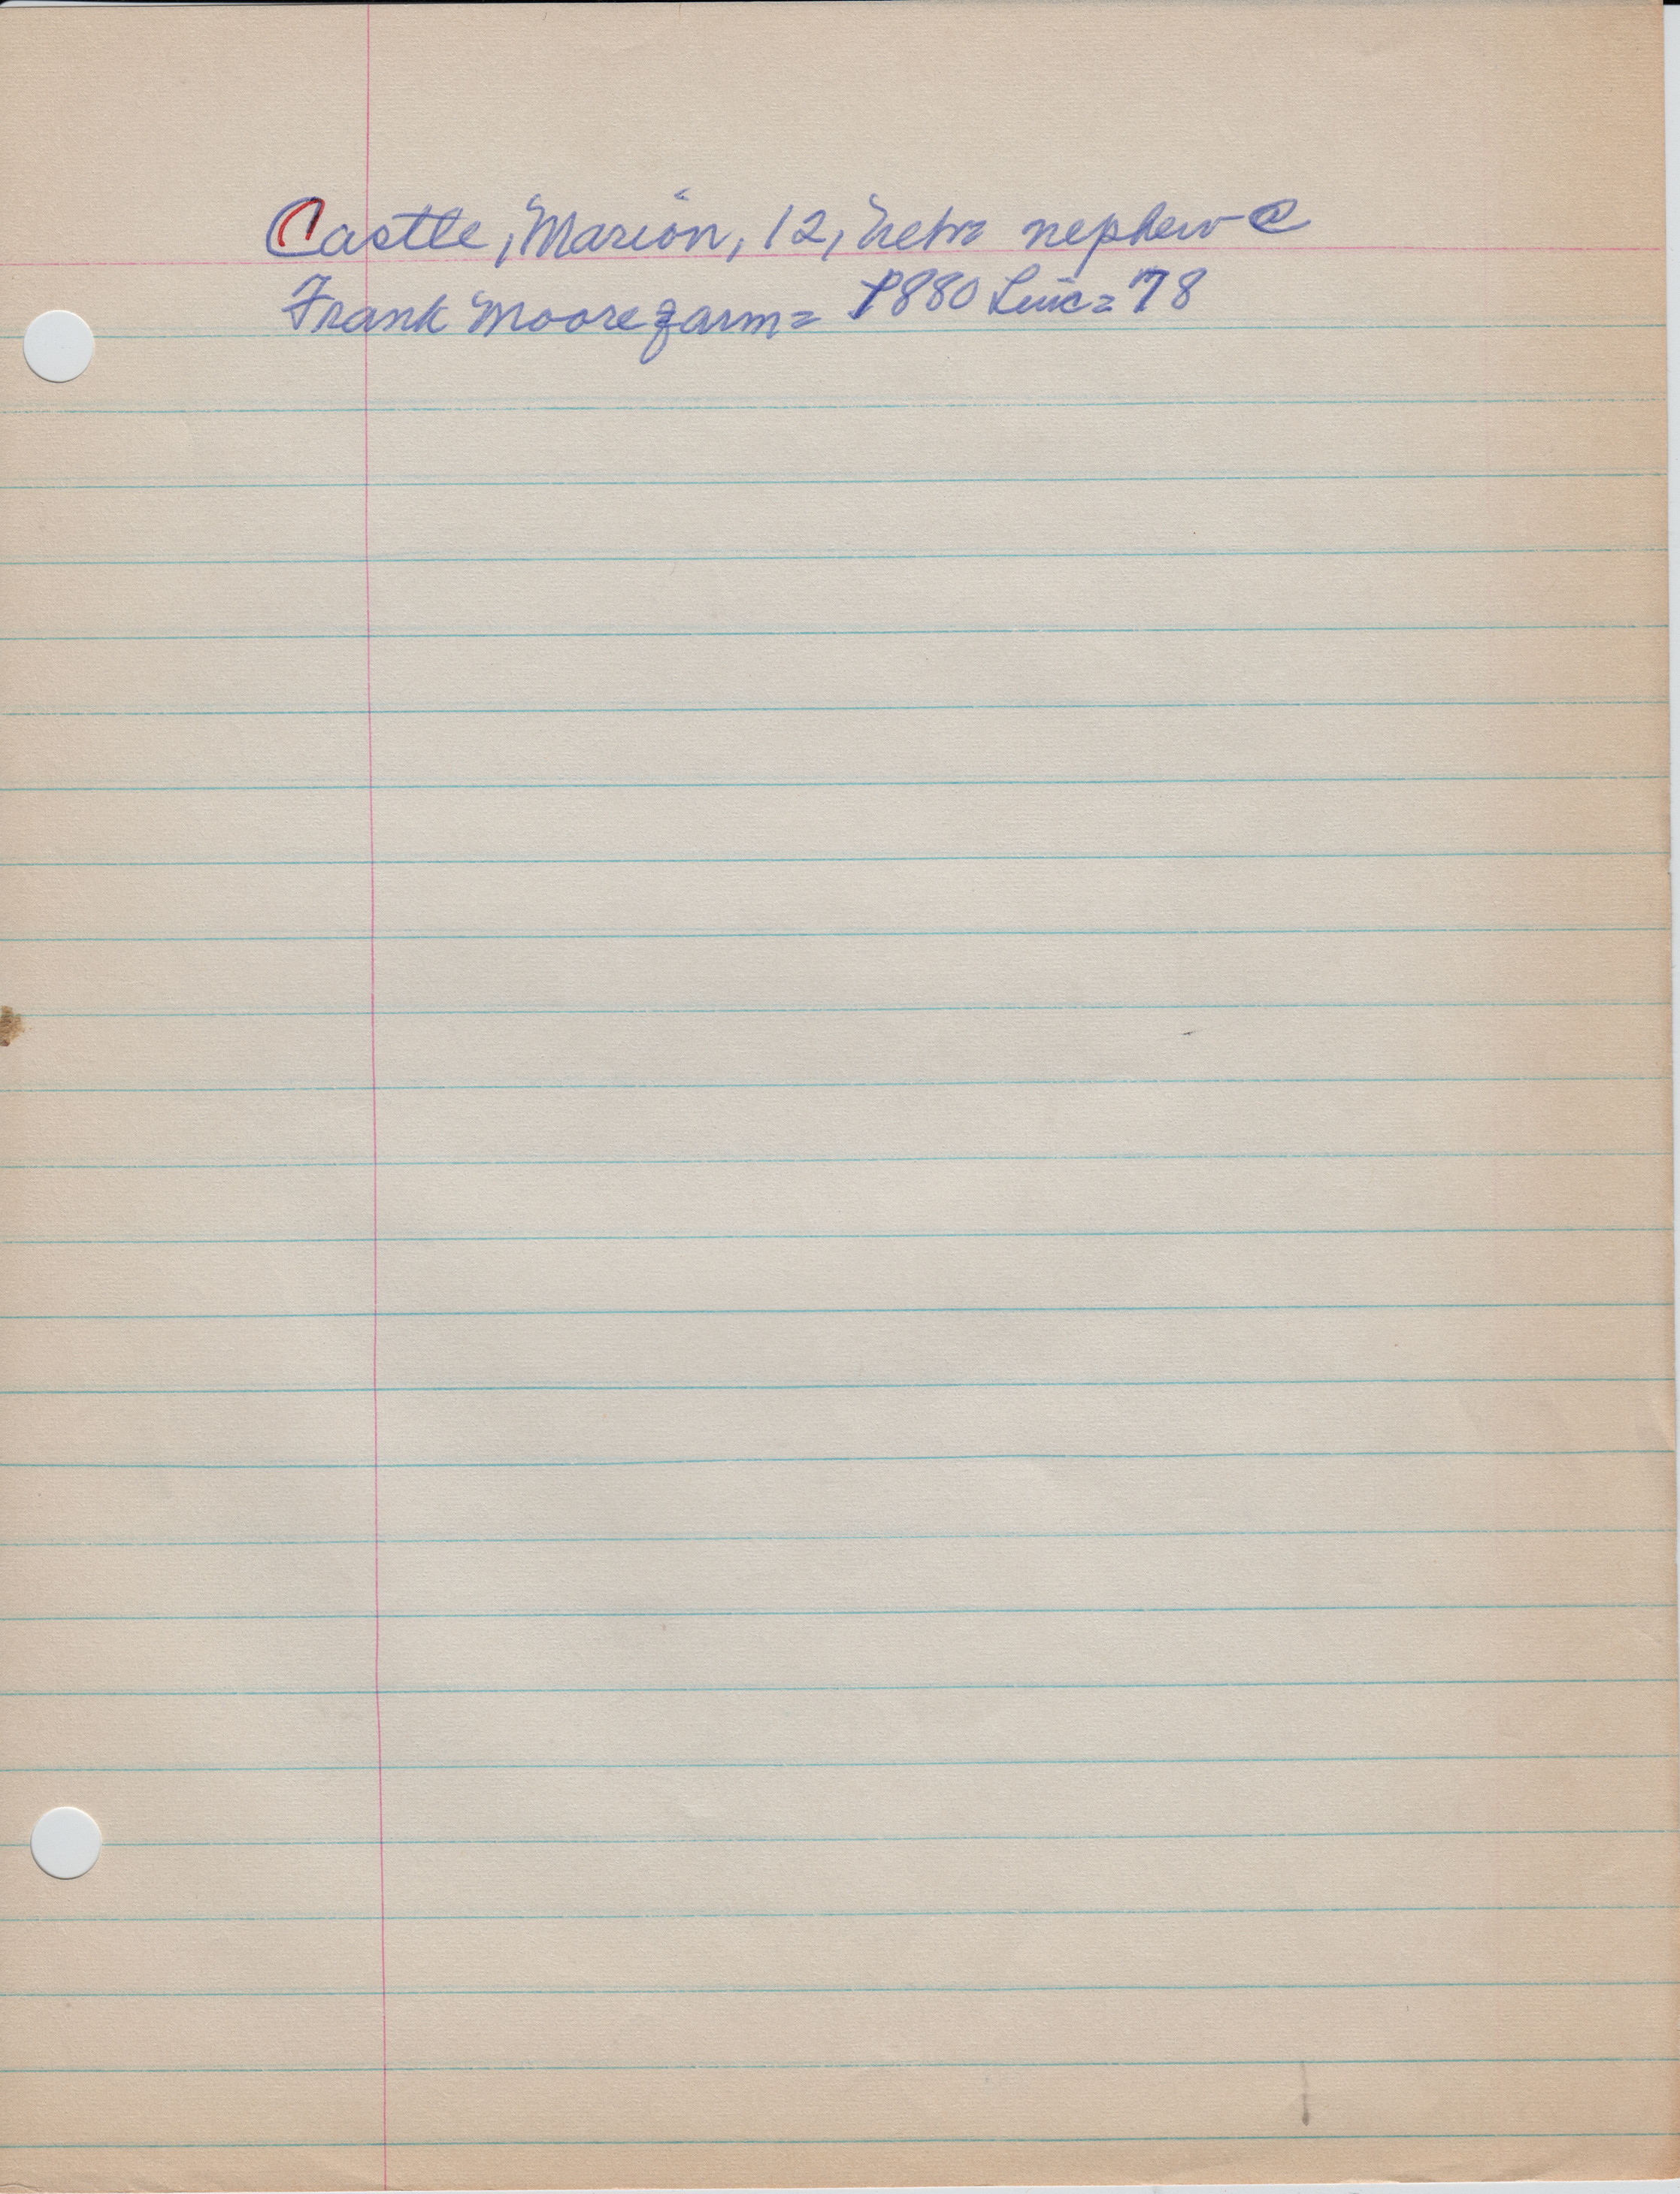 Castle, Marion, 12, Nebr= nephew @
Frank Moore farm= 1880 Linc= 78